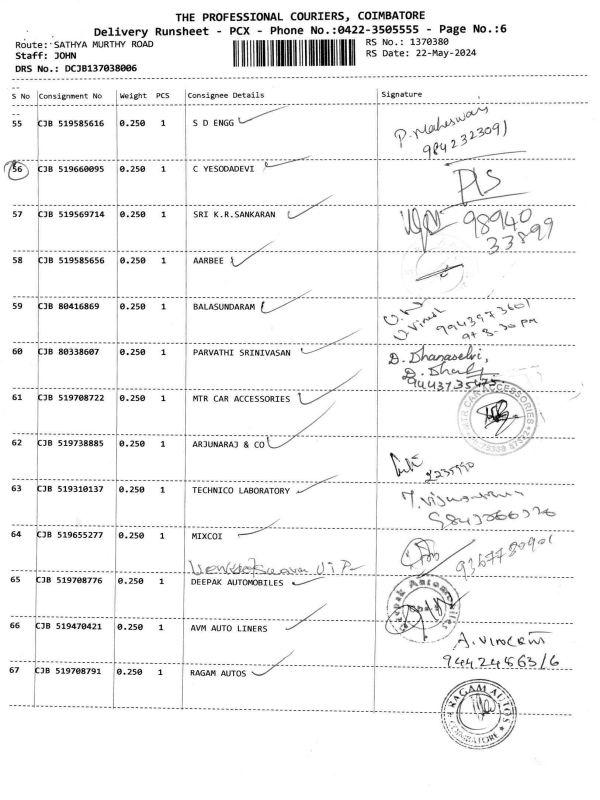 THE PROFESSIONAL COURIERS, COIMBATORE
Delivery Runsheet - PCX - Phone No.:0422-3505555 - Page No.:6
Route: SATHYA MURTHY ROAD RS No.: 1370380
Staff: JOHN RS Date: 22-May-2024
DRS No.: DCJB137038006
S No Consignment No Weight PCS Consignee Details Signature
55 CJB 519585616 0.250 1 S D ENGG
P. Maheswari
9842323091
56 CJB 519660095 0.250 1 C YESODADEVI
P/S
57 CJB 519569714 0.250 1 SRI K.R.SANKARAN
98940
33899
58 CJB 519585656 0.250 1 AARBEE
59 CJB 80416869 0.250 1 BALASUNDARAM
9943973601
at 3-30 pm
60 CJB 80338607 0.250 1 PARVATHI SRINIVASAN
D. Dhanaselvi,
9443735475
61 CJB 519708722 0.250 1 MTR CAR ACCESSORIES
MTR CAR ACCESSORIES
62 CJB 519738885 0.250 1 ARJUNARAJ & CO
2235990
63 CJB 519310137 0.250 1 TECHNICO LABORATORY
64 CJB 519655277 0.250 1 MIXCOI
9367780901
65 CJB 519708776 0.250 1 DEEPAK AUTOMOBILES
Deepak Automobiles
66 CJB 519470421 0.250 1 AVM AUTO LINERS
A. Vincent
9442456316
67 CJB 519708791 0.250 1 RAGAM AUTOS
RAGAM AUTOS
COIMBATORE